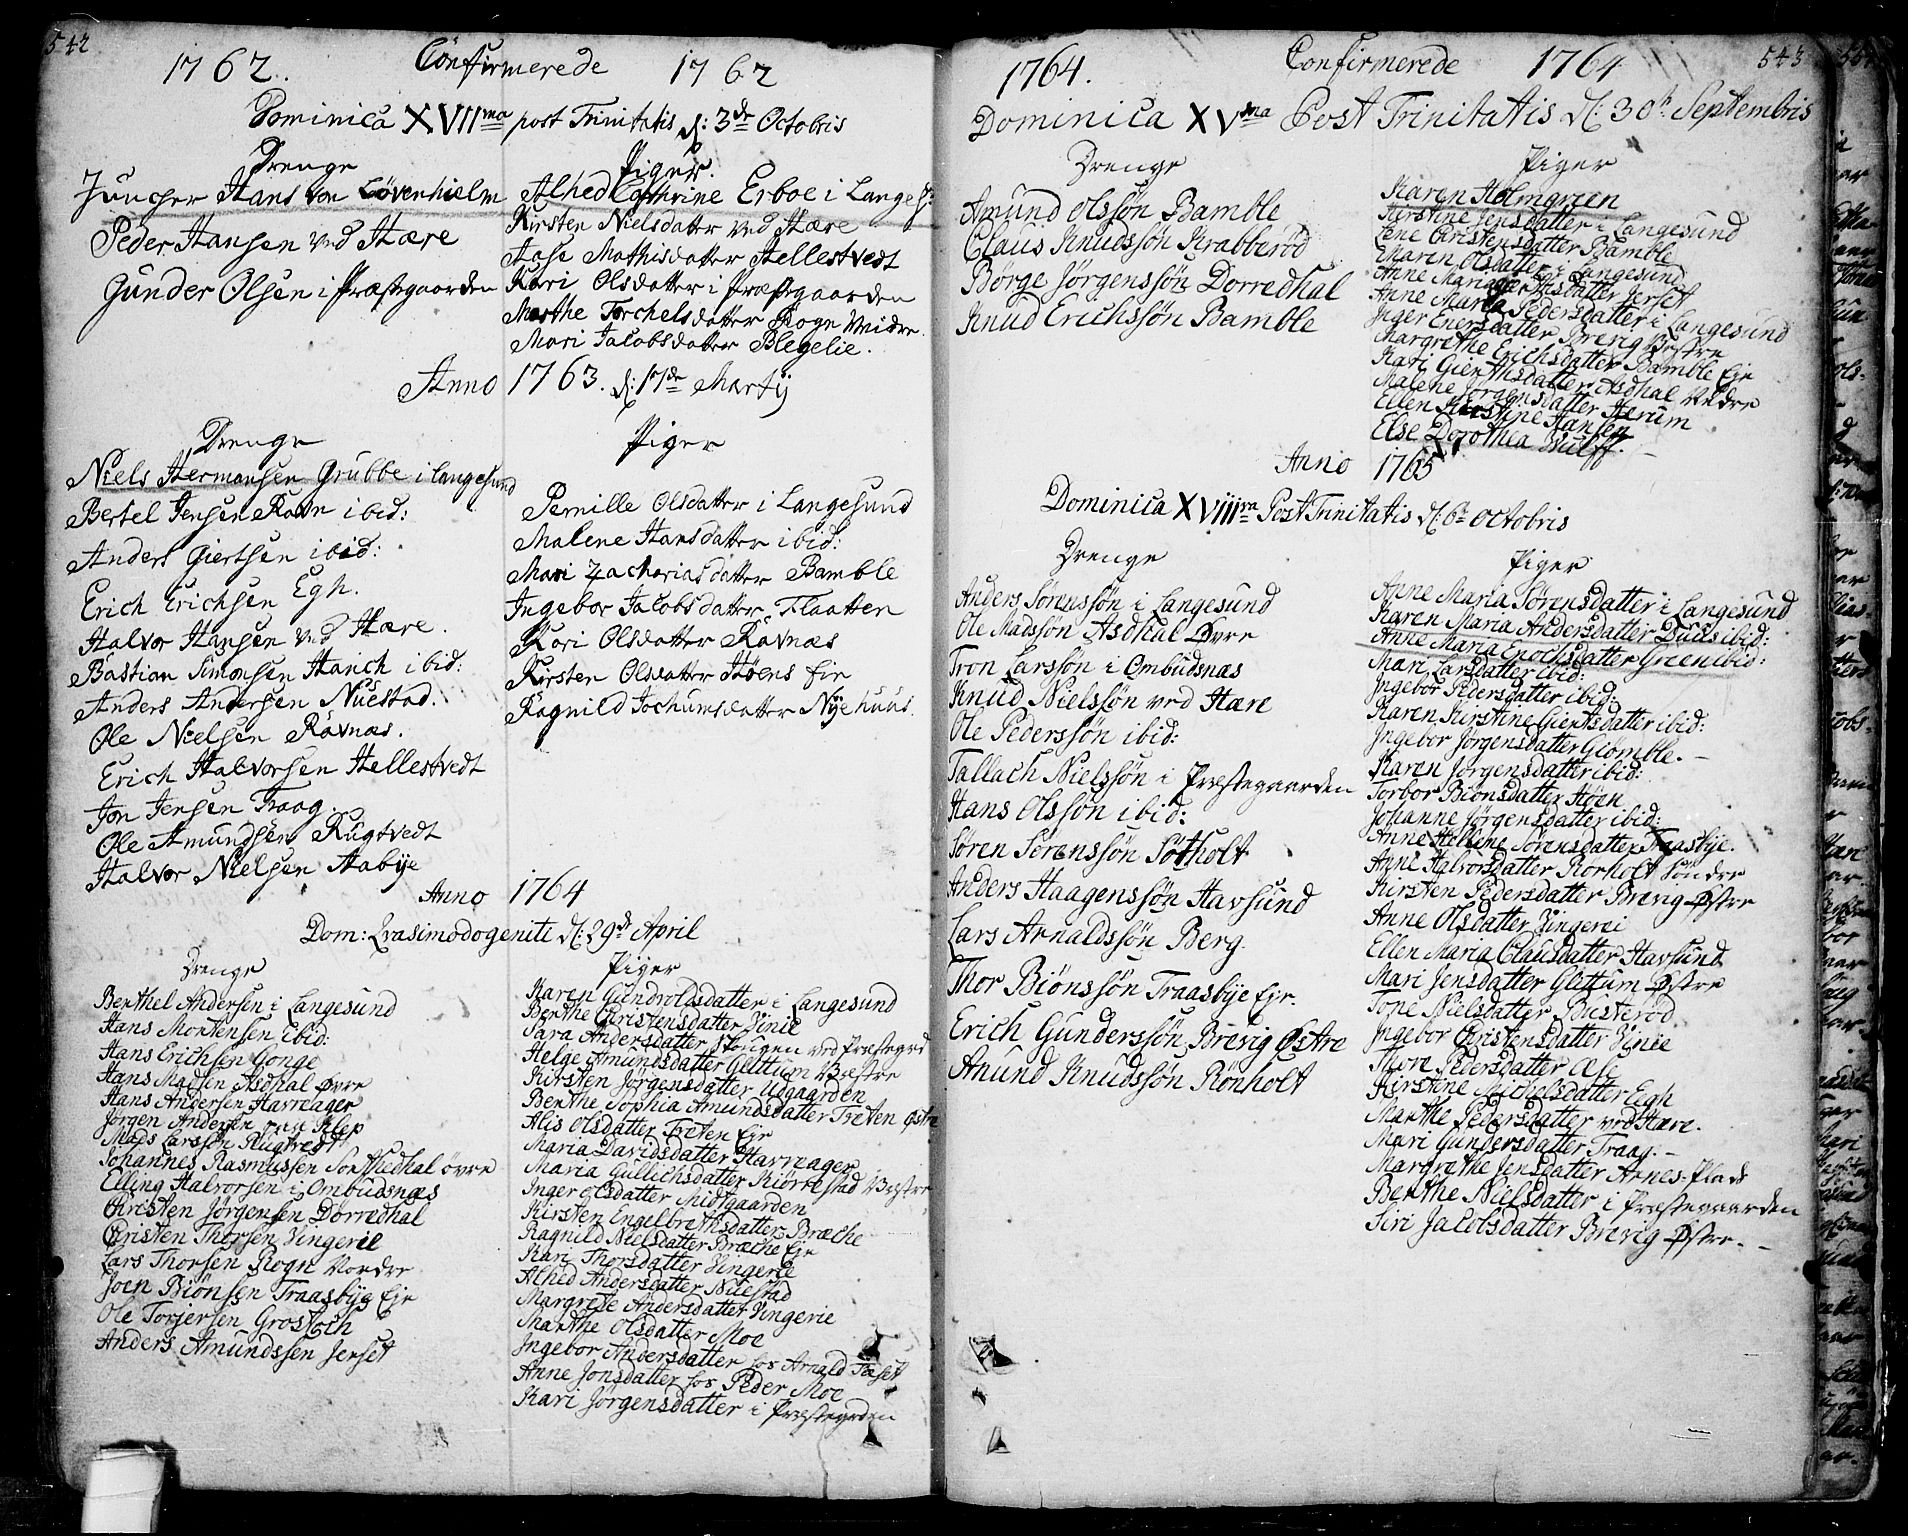 542
1762. Confirmerede 1762
Dominica XVII ma post Trinitatis d: 3de Octobris
Drenge
Juncher Hans von Lövenhielm
Peder Hansen ved Hære
Gunder Olsen i Præstegaarden
Piger.
Alhed Cathrine Erboe i Langes:
Kirsten Nielsdatter ved Hære
Aase Mathisdatter Hellestvedt
Kari Olsdatter i Præstegaarden
Marthe Torchelsdatter Rogn Meidre.
Mari Jacobsdatter Blegelie.
Anno 1763. d: 17de Martij
Drenge
Niels Hermansen Grubbe i Langesund
Bertel Jensen Ravn ibid:
Anders Giertsen ibid:
Erich Erichsen Egh.
Halvor Hansen ved Hære.
Bastian Simonsen Hanich ibid:
Anders Andersen Nuestad.
Ole Nielsen Ravnæs.
Erich Halvorsen Hellestvedt
Jon Jensen Traag.
Ole Amundsen Rugtvedt
Halvor Nielsen Aabye
Piger
Pernille Olsdatter i Langesund
Malene Hansdatter ibid:
Mari Zachariasdatter Bamble
Ingebor Jacobsdatter Flaatten
Kari Olsdatter Ravnæs
Kirsten Olsdatter Høens Eie
Ragnild Jochumsdatter Nyehuus.
Anno 1764
Dom: Qvasimodogeniti d: 29de April
Drenge
Berthel Andersen i Langesund
Hans Mortensen Ibid:
Hans Erichsen Gonge
Hans Madsen Asdhal Øvre
Hans Andersen Havreager
Jørgen Andersen Klep
Mads Larssøn Rugtvedt
Johannes Rasmussen Sortsedhal øvre
Elling Halvorsen i Ombudsnæs
Christen Jørgensen Dorredhal
Christen Thorsen Vingerie
Lars Thorsen Rogn Nordre
Joen Biönsen Traasbye Eje
Ole Torjersen Grostoch
Anders Amundssen Jerset
Piger
Karen Gundroldsdatter i Langesund
Berthe Christensdatter Vinie
Sara Andersdatter Skougen ved Præstegrd
Helge Amundsdatter Glittum Vestre
Kirsten Jörgensdatter Udgaarden
Berthe Sophia Amundsdatter Treten Østre
Alis Olsdatter Treten Eje
Maria Davidsdatter Havreager
Maria Gullichsdatter Kiørrestad Vestre
Inger olsdatter Midtgaarden
Kirsten Engelbrethsdatter Bræche
Ragnild Nielsdatter Bræche Eje
Kari Thorsdatter Vingerie
Alhed Andersdatter Nuestad
Margrete Andersdatter Vingerie
Marthe Olsdatter Moe
Ingebor Andersdatter hos Arnald Taaset
Anne Jonsdatter hos Peder Moe
Kari Jørgensdatter i Præstegrden
1764. Confirmerede 1764 543
Dominica XV ma Post Trinitatis d: 30te Septembris
Drenge
Amund Olssøn Bamble
Claus Knudssøn Krabberød
Børge Jörgenssøn Dorredhal
Knud Erichssøn Bamble
Piger
Karen Holmgreen
Kirstine Jensdatter i Langesund
Lene Christensdatter Bamble
Maren Olsdatter i Langesund
Anne Maria Giertsdatter Jerset
Anne Maria Pedersdatter i Langesund
Inger Enersdatter Brevig Vestre
Margrethe Erichsdatter Bamble Eje
Kari Gierthsdatter Asdhal Nedre
Malene Jörgensdatter Herum
Ellen Kirstine Hansen
Else Dorothea Wulff.
Anno 1765
Dominica XVIII va Post Trinitatis d: 6te Octobris
Drenge
Anders Sørenssøn i Langesund
Ole Madssøn Asdhal Øvre
Tron Larssøn i Ombudsnæs
Knud Nielssøn ved Hære
Ole Pederssøn ibid:
Tallach Nielssøn i Præstegaarden
Hans Olssøn ibid:
Søren Sörenssøn Sötholt
Anders Haagenssøn Havsund
Lars Arnaldssøn Berg.
Thor Biönssøn Traasbye Eje.
Erich Gunderssøn Brevig Østre
Anund Knudssøn Rönholt
Piger
Anne Maria Sørensdatter i Langesund
Karen Maria Andersdatter Duus ibid:
Anne Maria Enochsdatter Green ibid:
Mari Larsdatter ibid:
Ingebor Pedersdatter ibid:
Karen Kirstine Giertsdatter ibid:
Ingebor Jørgensdatter Giomble.
Karen Jørgensdatter ibid:
Torbor Biönsdatter Høen
Johanne Jørgensdatter ibid:
Anne Hellene Sørensdatter Traasbye.
Anne Halvorsdatter Rorholt Söndre
Kirsten Pedersdatter Brevig Østre
Anne Olsdatter Vingerei
Ellen Maria Clausdatter Havsund
Mari Jensdatter Glittum Østre
Tone Nielsdatter Busterød
Ingebor Christensdatter Vinie
Thore Pedersdatter Ose
Kirstine Michelsdatter Egh
Marthe Pedersdatter ved Hære.
Mari Gundersdatter Traag.
Margrethe Jensdatter Arnes-Plads
Berthe Nielsdatter i Præstegaarden
Siri Jacobsdatter Brevig Østre.